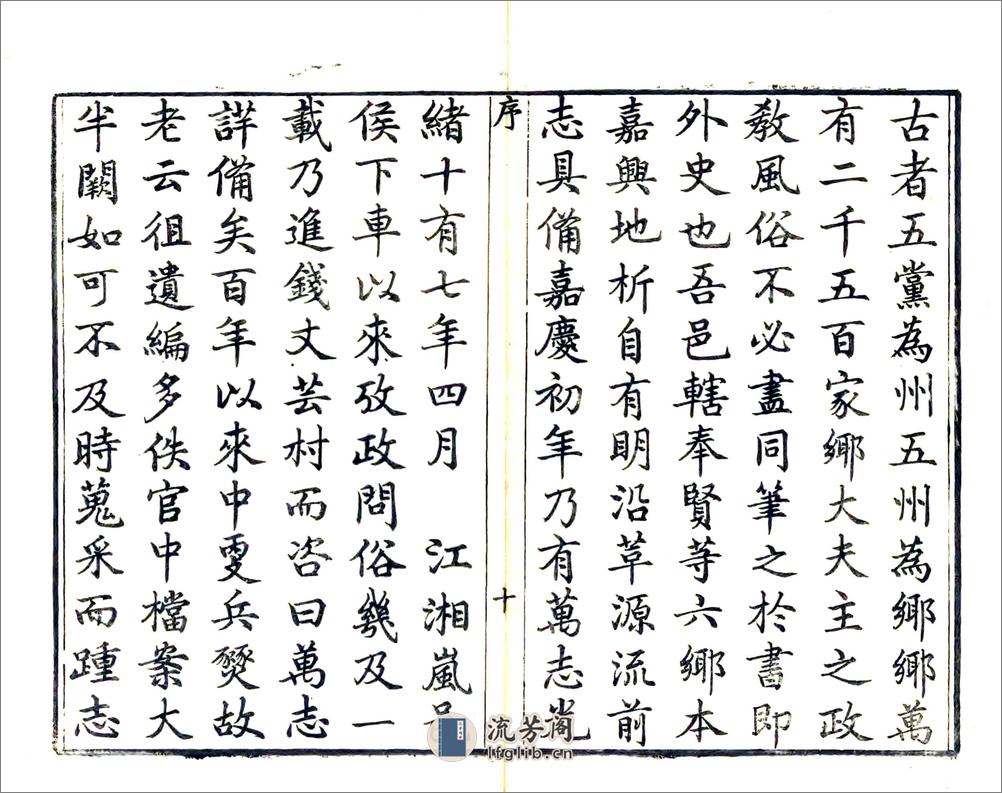 古者五黨為州五州為鄉鄉萬
有二千五百家鄉大夫主之政
敎風俗不必盡同筆之於書即
外史也吾邑轄奉賢等六鄉本
嘉興地析自有明沿革源流前
志具備嘉慶初年乃有萬志光
序
十
緒十有七年四月 江湘嵐
侯下車以來攷政問俗幾及一
載乃進錢丈芸村而咨曰萬志
詳備矣百年以來中更兵燹故
老云徂遺編多佚官中檔案大
半闕如可不及時蒐采而踵志
流芳阁
lfglib.cn